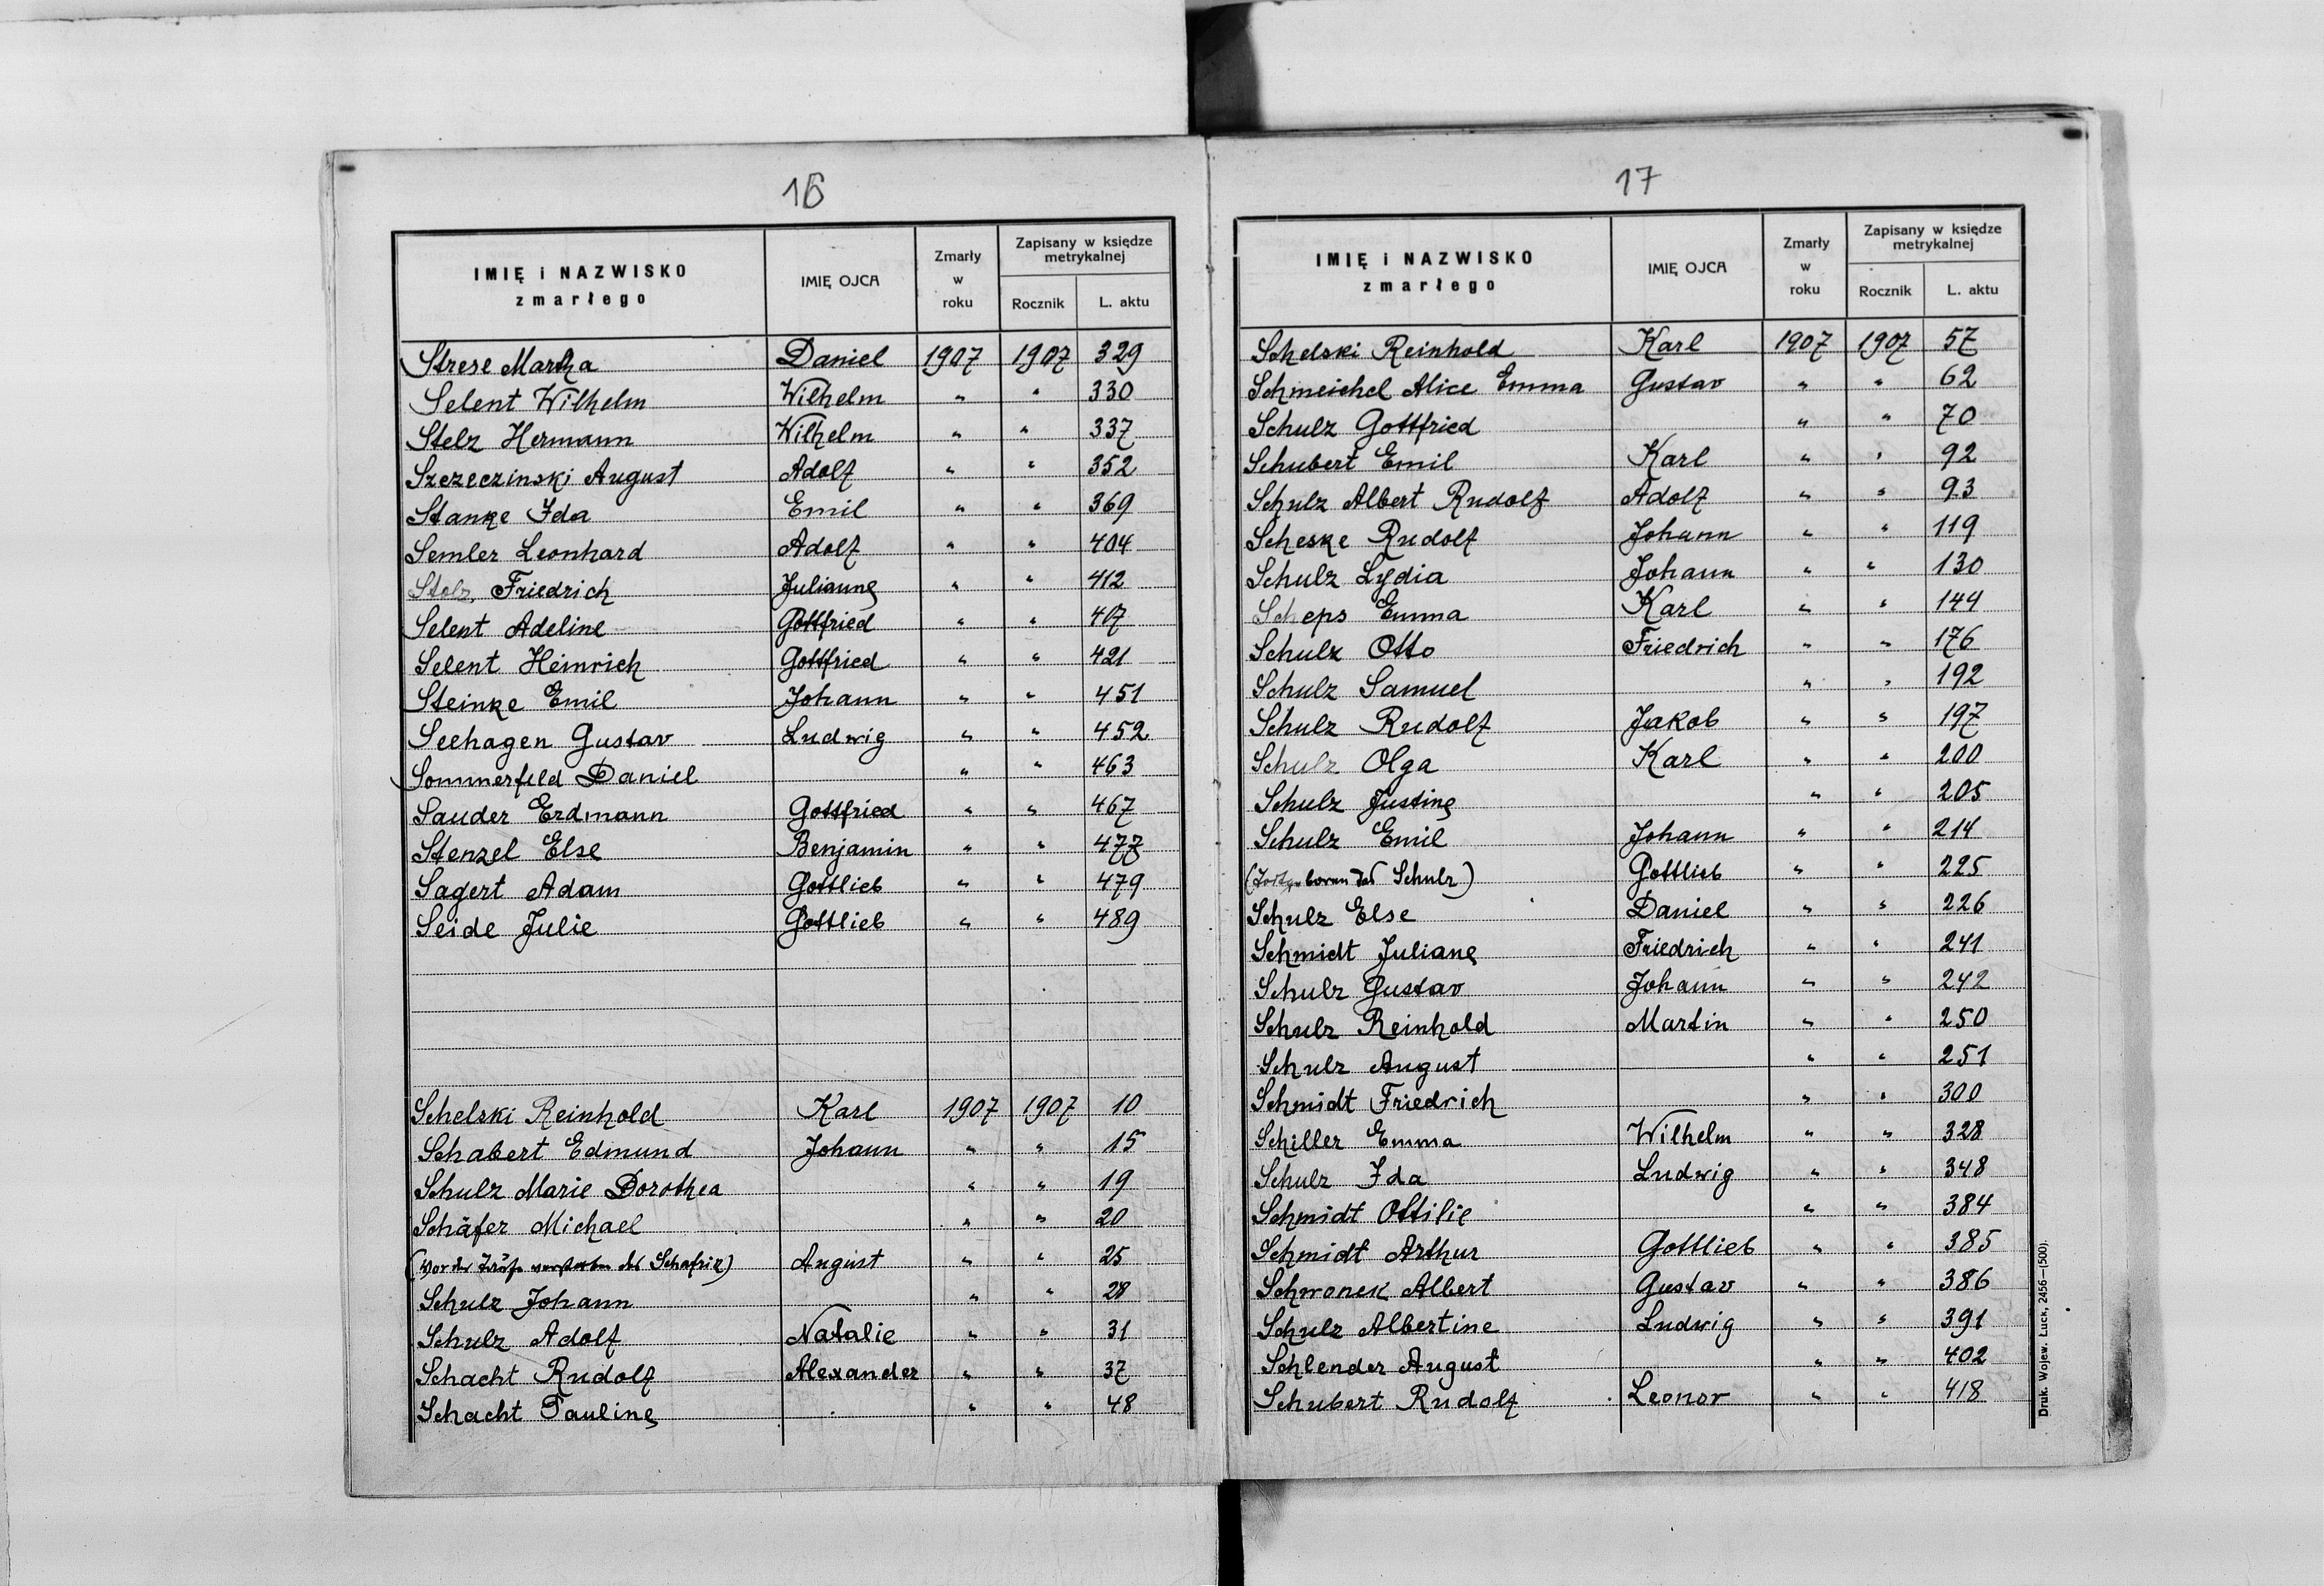 16
IMIĘ i NAZWISKO zmarłego | IMIĘ OJCA | Zmarły w roku | Zapisany w księdze metrykalnej
Rocznik | L. aktu
Strese Martha Daniel 1907 1907 329
Selent Wilhelm Wilhelm " " 330
Stelz Hermann Wilhelm " " 337
Szczeczinski August Adolf " " 352
Stanke Ida Emil " " 369
Semler Leonhard Adolf " " 404
Stolz, Friedrich Julianne " " 412
Selent Adeline Gottfried " " 417
Selent Heinrich Gottfried " " 421
Steinke Emil Johann " " 451
Seehagen Gustav Ludwig " " 452
Sommerfeld Daniel " " 463
Sauder Erdmann Gottfried " " 467
Stenzel Else Benjamin " " 477
Sagert Adam Gottlieb " " 479
Seide Julie Gottlieb " " 489
Schelski Reinhold Karl 1907 1907 10
Schabert Edmund Johann " " 15
Schulz Marie Dorothea " " 19
Schäfer Michael " " 20
(Vor der verstorben des Schafrik) August " " 25
Schulz Johann " " 28
Schulz Adolf Natalie " " 31
Schacht Rudolf Alexander " " 37
Schacht Pauline " " 48
17
IMIĘ i NAZWISKO zmarłego | IMIĘ OJCA | Zmarły w roku | Zapisany w księdze metrykalnej
Rocznik | L. aktu
Schelski Reinhold Karl 1907 1907 57
Schmeichel Alice Emma Gustav " " 62
Schulz Gottfried " " 70
Schubert Emil Karl " " 92
Schulz Albert Rudolf Adolf " " 93
Scheske Rudolf Johann " " 119
Schulz Lydia Johann " " 130
Scheps Emma Karl " " 144
Schulz Otto Friedrich " " 176
Schulz Samuel " " 192
Schulz Rudolf Jakob " " 197
Schulz Olga Karl " " 200
Schulz Justine " " 205
Schulz Emil Johann " " 214
(Totgeboren des Schulz) Gottlieb " " 225
Schulz Else Daniel " " 226
Schmidt Juliane Friedrich " " 241
Schulz Gustav Johann " " 242
Schulz Reinhold Martin " " 250
Schulz August " " 251
Schmidt Friedrich " " 300
Schiller Emma Wilhelm " " 328
Schulz Ida Ludwig " " 348
Schmidt Ottilie " " 384
Schmidt Arthur Gottlieb " " 385
Schwonek Albert Gustav " " 386
Schulz Albertine Ludwig " " 391
Schlender August " " 402
Schubert Rudolf Leonor " " 418
Druk. Wojew. Łuck, 2456—(500).